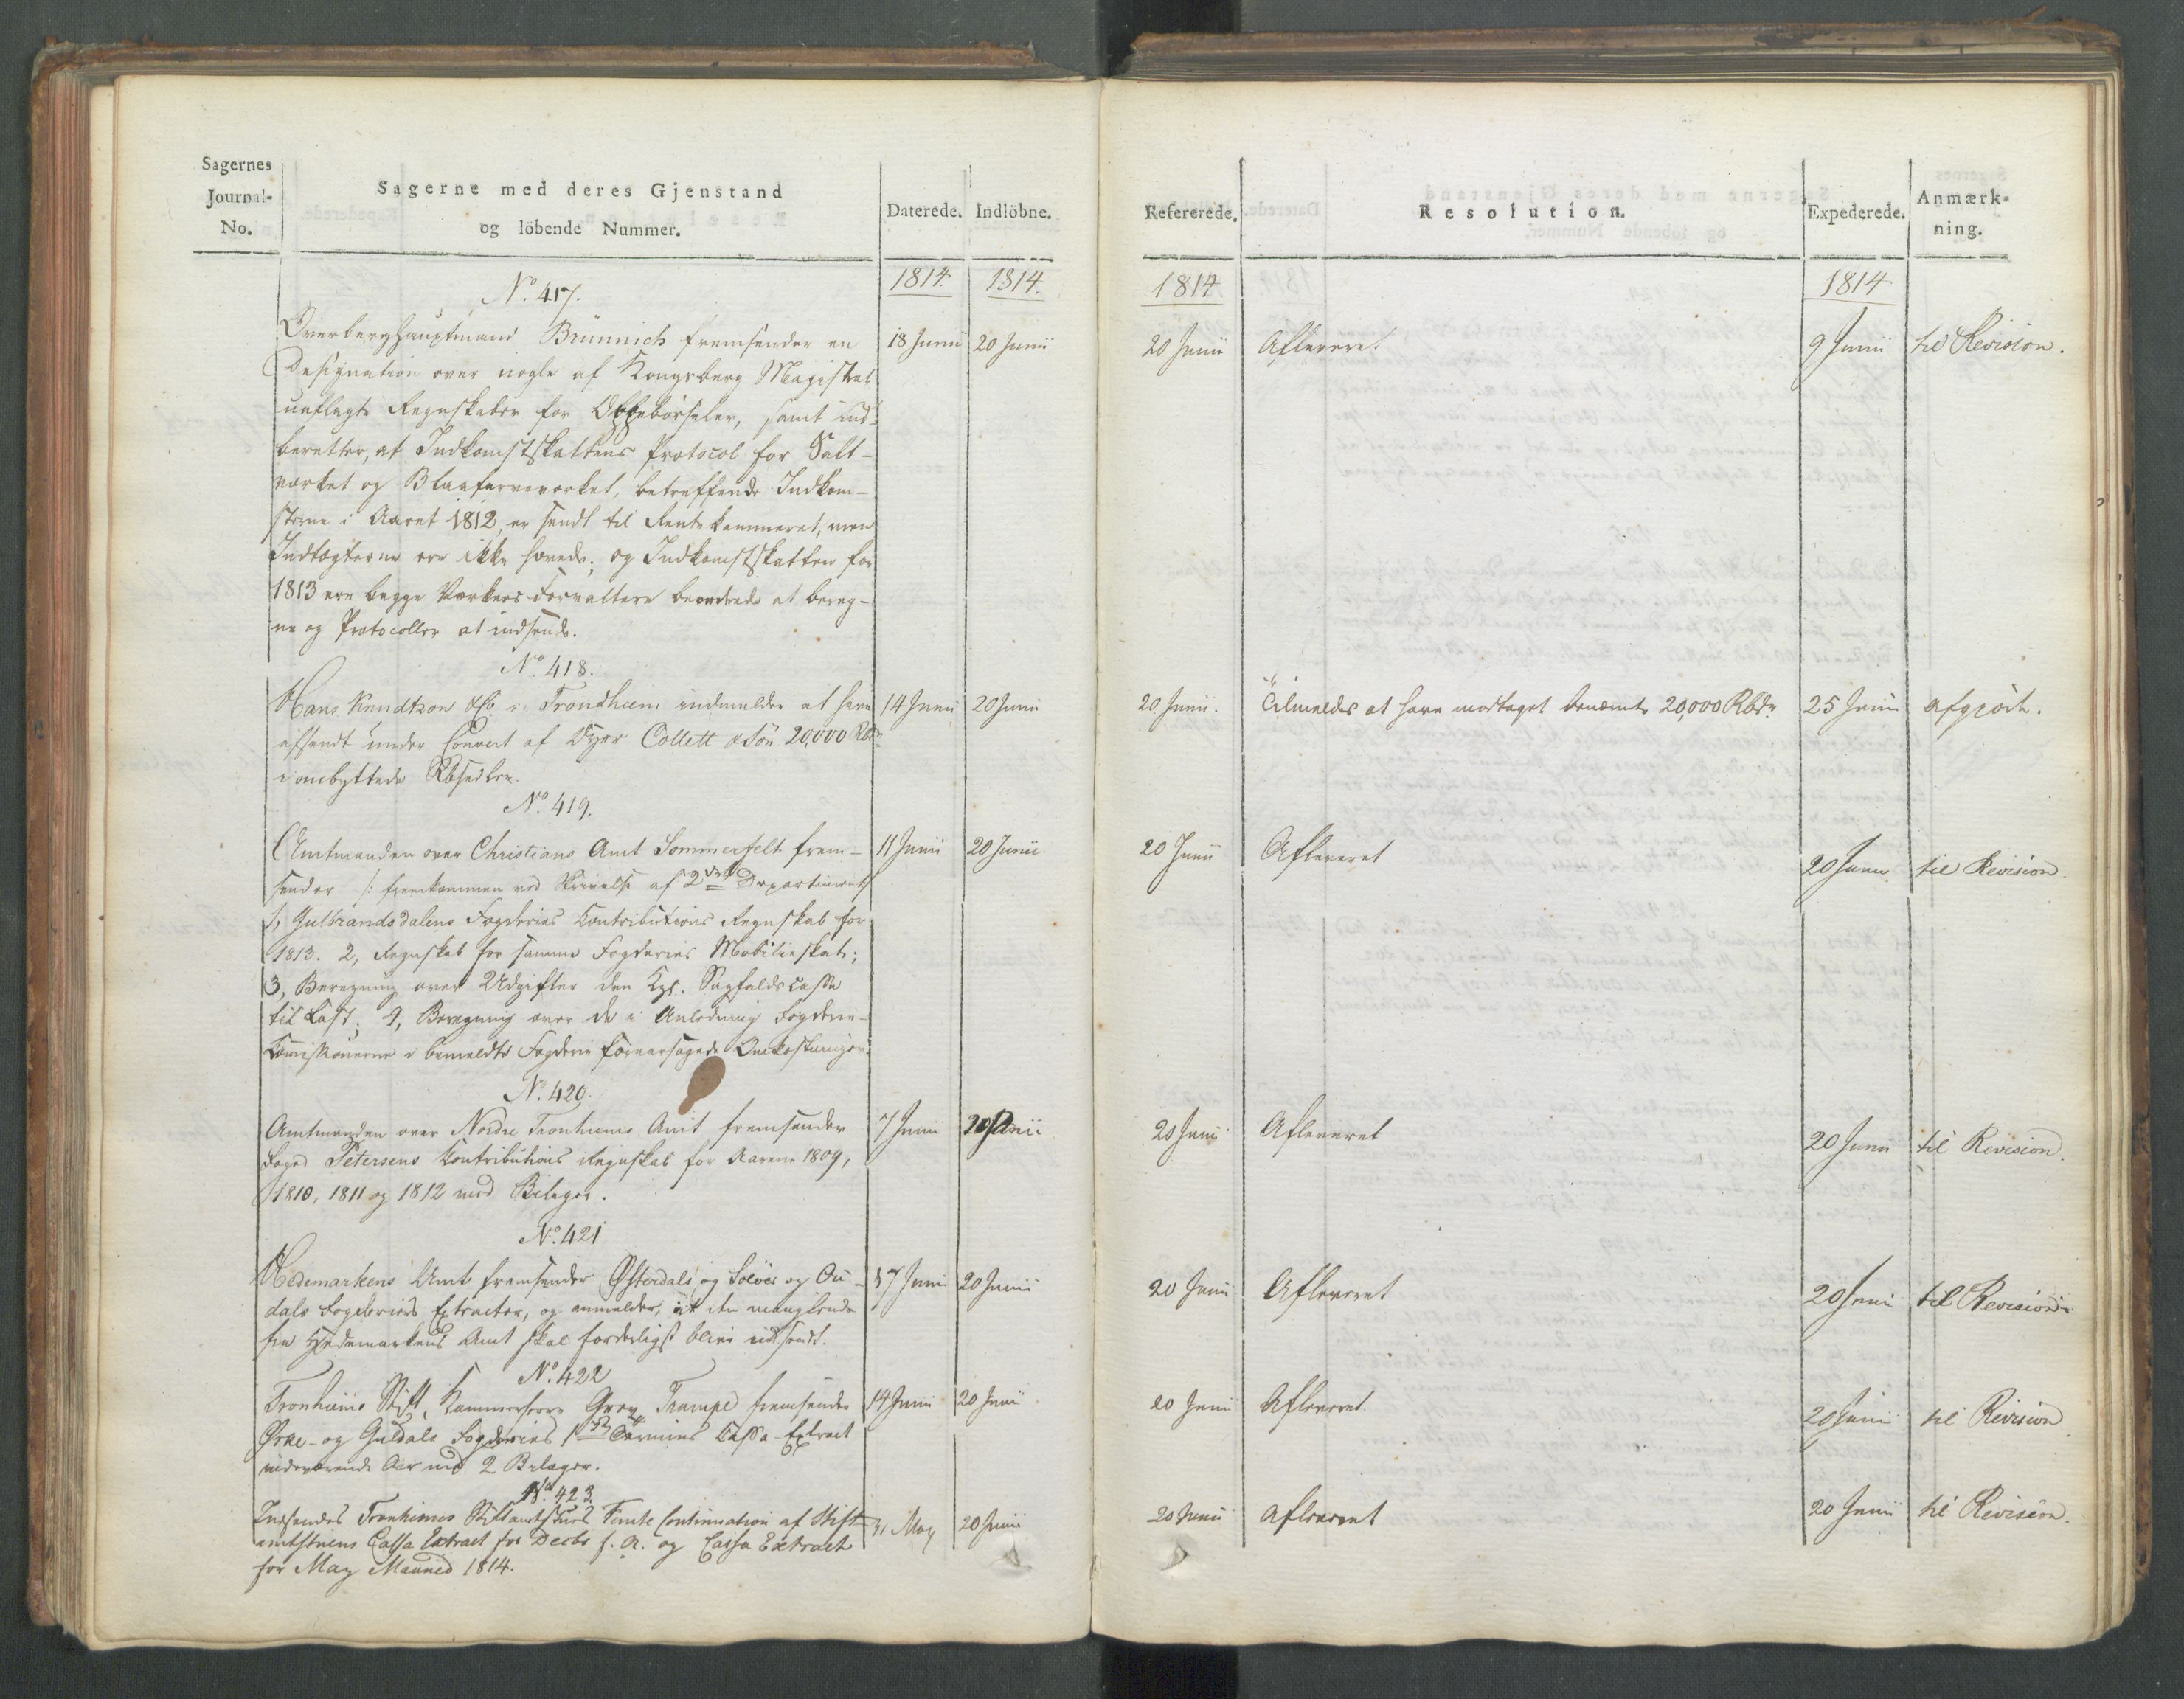 Sagernes
Journal-
No.
Sagerne med deres Gjenstand
og löbende Nummer.
Daterede.
Indlöbne.
1814.
1814.
No. 417.
Overberghauptmand Brünnich fremsender en
Designation over nogle af Kongsberg Magistrat
aflagte Regnskaber for , samt ind-
beretter, at Indkomstskattens Protocol for Salt-
værket og Blaafarveværket, betreffende Indkom-
sterne i Aaret 1812, er sendt til Rentekammeret, men
Indtægterne ere ikke hævede; og Indkomstskatten for
1813 ere begge Værkers Forvaltere beordrede at bereg-
ne og Protocoller at indsende.
18 Junii
20 Junii
No. 418.
Hans Knudtzon & Co. i Trondhiem indmelder at have
afsendt under Couvert af Dyrr Collett & Sön 20,000 Rbdr
i ombyttede Rbsedler.
14 Junii
20 Junii
No. 419.
Amtmanden over Christians Amt Sommerfelt frem-
sender /: fremkommen ved Skrivelse af 2det Departement
1, Gulbrandsdalens Fogderies Contributions Regnskab for
1813. 2, Regnskab for samme Fogderies Mobilieskat;
3, Beregning over Udgifter den Kgl. Sagfaldscasse
til Last; 4, Beregning over de i Anledning Fogderie-
Commissionerne i bemeldte Fogderie foraarsagede Omkostninger.
11 Junii
20 Junii
No. 420.
Amtmanden over Nordre Tronhiems Amt fremsender
Foged Petersens Contributions Regnskab for Aarene 1809,
1810, 1811 og 1812 med Bilager.
7 Junii
20 Junii
No. 421
Hedemarkens Amt fremsender Østerdals og Soløer og Ou-
dals Fogderiers Extracter, og anmelder, at den manglende
fra Hedemarkens Amt skal forderligst blive indsendt.
17 Junii
20 Junii
No. 422
Tronhiems Stift, Kammerherre Grev Trampe fremsender
Orke- og Guldals Fogderies 1ste Termins Cassa-Extract
indeværende Aar med 2 Bilager.
14 Junii
20 Junii
No. 423
Indsendes Tronhiems Stiftamtstues Continuation af Stift-
amtstuens Cassa Extract for Decbr f. A. og Cassa Extract
for May Maaned 1814.
31 May
20 Junii
Refererede.
Resolution.
Expederede.
Anmærk-
ning.
1814
1814
20 Junii
Afleveret
9 Junii
til Revision.
20 Junii.
Tilmeldes at have modtaget benævnte 20,000 Rbdr
25 Junii
afgiort.
20 Junii
Afleveret
20 Junii
til Revision
20 Junii
Afleveret
20 Junii
til Revision.
20 Junii
Afleveret
20 Junii
til Revision
20 Junii
Afleveret
20 Junii
til Revision
20 Junii
Afleveret
20 Junii
til Revision.